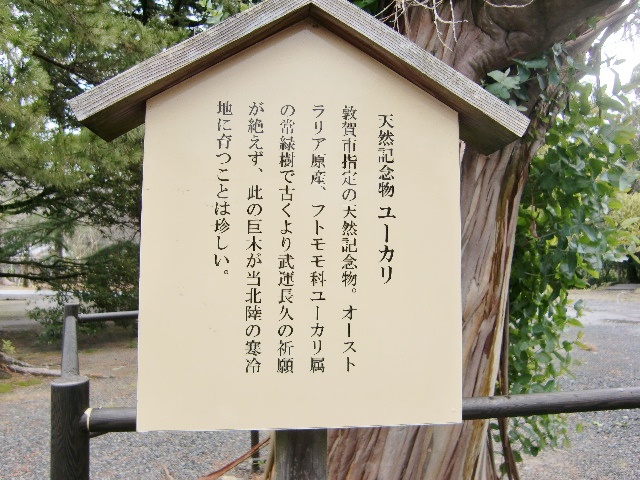 天然記念物 ユーカリ
敦賀市指定の天然記念物。オースト
ラリア原産、フトモモ科ユーカリ属
の常緑樹で古くより武運長久の祈願
が絶えず、此の巨木が当北陸の寒冷
地に育つことは珍しい。